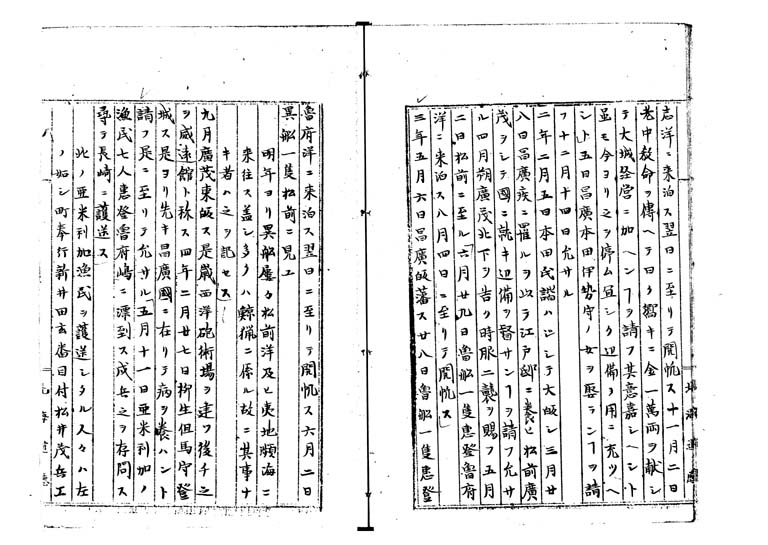 志洋ニ来泊ス翌日ニ至リテ開帆ス十一月二日
老中教命ヲ傳ヘテ曰ク嚮キニ金一萬両ヲ献シ
テ大城経営ニ加ヘンヿヲ請フ其意嘉シヘント
並モ今ヨリ之ヲ停ム宜シク辺備ノ用ニ充ツヘ
シト五日昌廣本田伊勢守ノ女ヲ娶ランヿヲ請
フ十二月十四日允サル
二年二月五日本田氏諧ハシテ大皈シ三月廿
八日昌廣疾ニ罹ルヲ以テ江戸邸ニ養ヒ松前廣
茂ヲシテ國ニ就キ辺備ヲ督サンヿヲ請フ允サ
ル四月朔廣茂北下ヲ告ク時服二襲ヲ賜フ五月
二日松前ニ至ル「六月廿九日魯船一隻恵登魯府
洋ニ来泊ス八月四日ニ至リテ開帆ス」
三年五月六日昌廣皈藩ス廿八日魯船一隻恵登
魯府洋ニ来泊ス翌日ニ至リテ開帆ス六月二日
異船一隻松前ニ見エ
明年ヨリ異船屢々松前洋及ヒ夷地瀕海ニ
来往ス蓋シ多クハ鯨猟ニ係ル故ニ其事ナ
キ者ハ之ヲ記セス
九月廣茂東皈ス是歳西洋砲術場ヲ建ツ後チ之
ヲ威遠館ト称ス四年二月廿七日柳生但馬守登
城ス是ヨリ先キ昌廣國ニ在リテ病ヲ養ハント
請フ是ニ至リテ允サル「五月十一日亜米利加ノ
漁民七人恵登魯府嶋ニ漂到ス戍兵之ヲ存問ス
尋テ長崎ニ護送ス
此ノ亜米利加漁民ヲ護送シタル人々ハ左
ノ如シ町奉行新井田玄畨目付松井茂兵エ